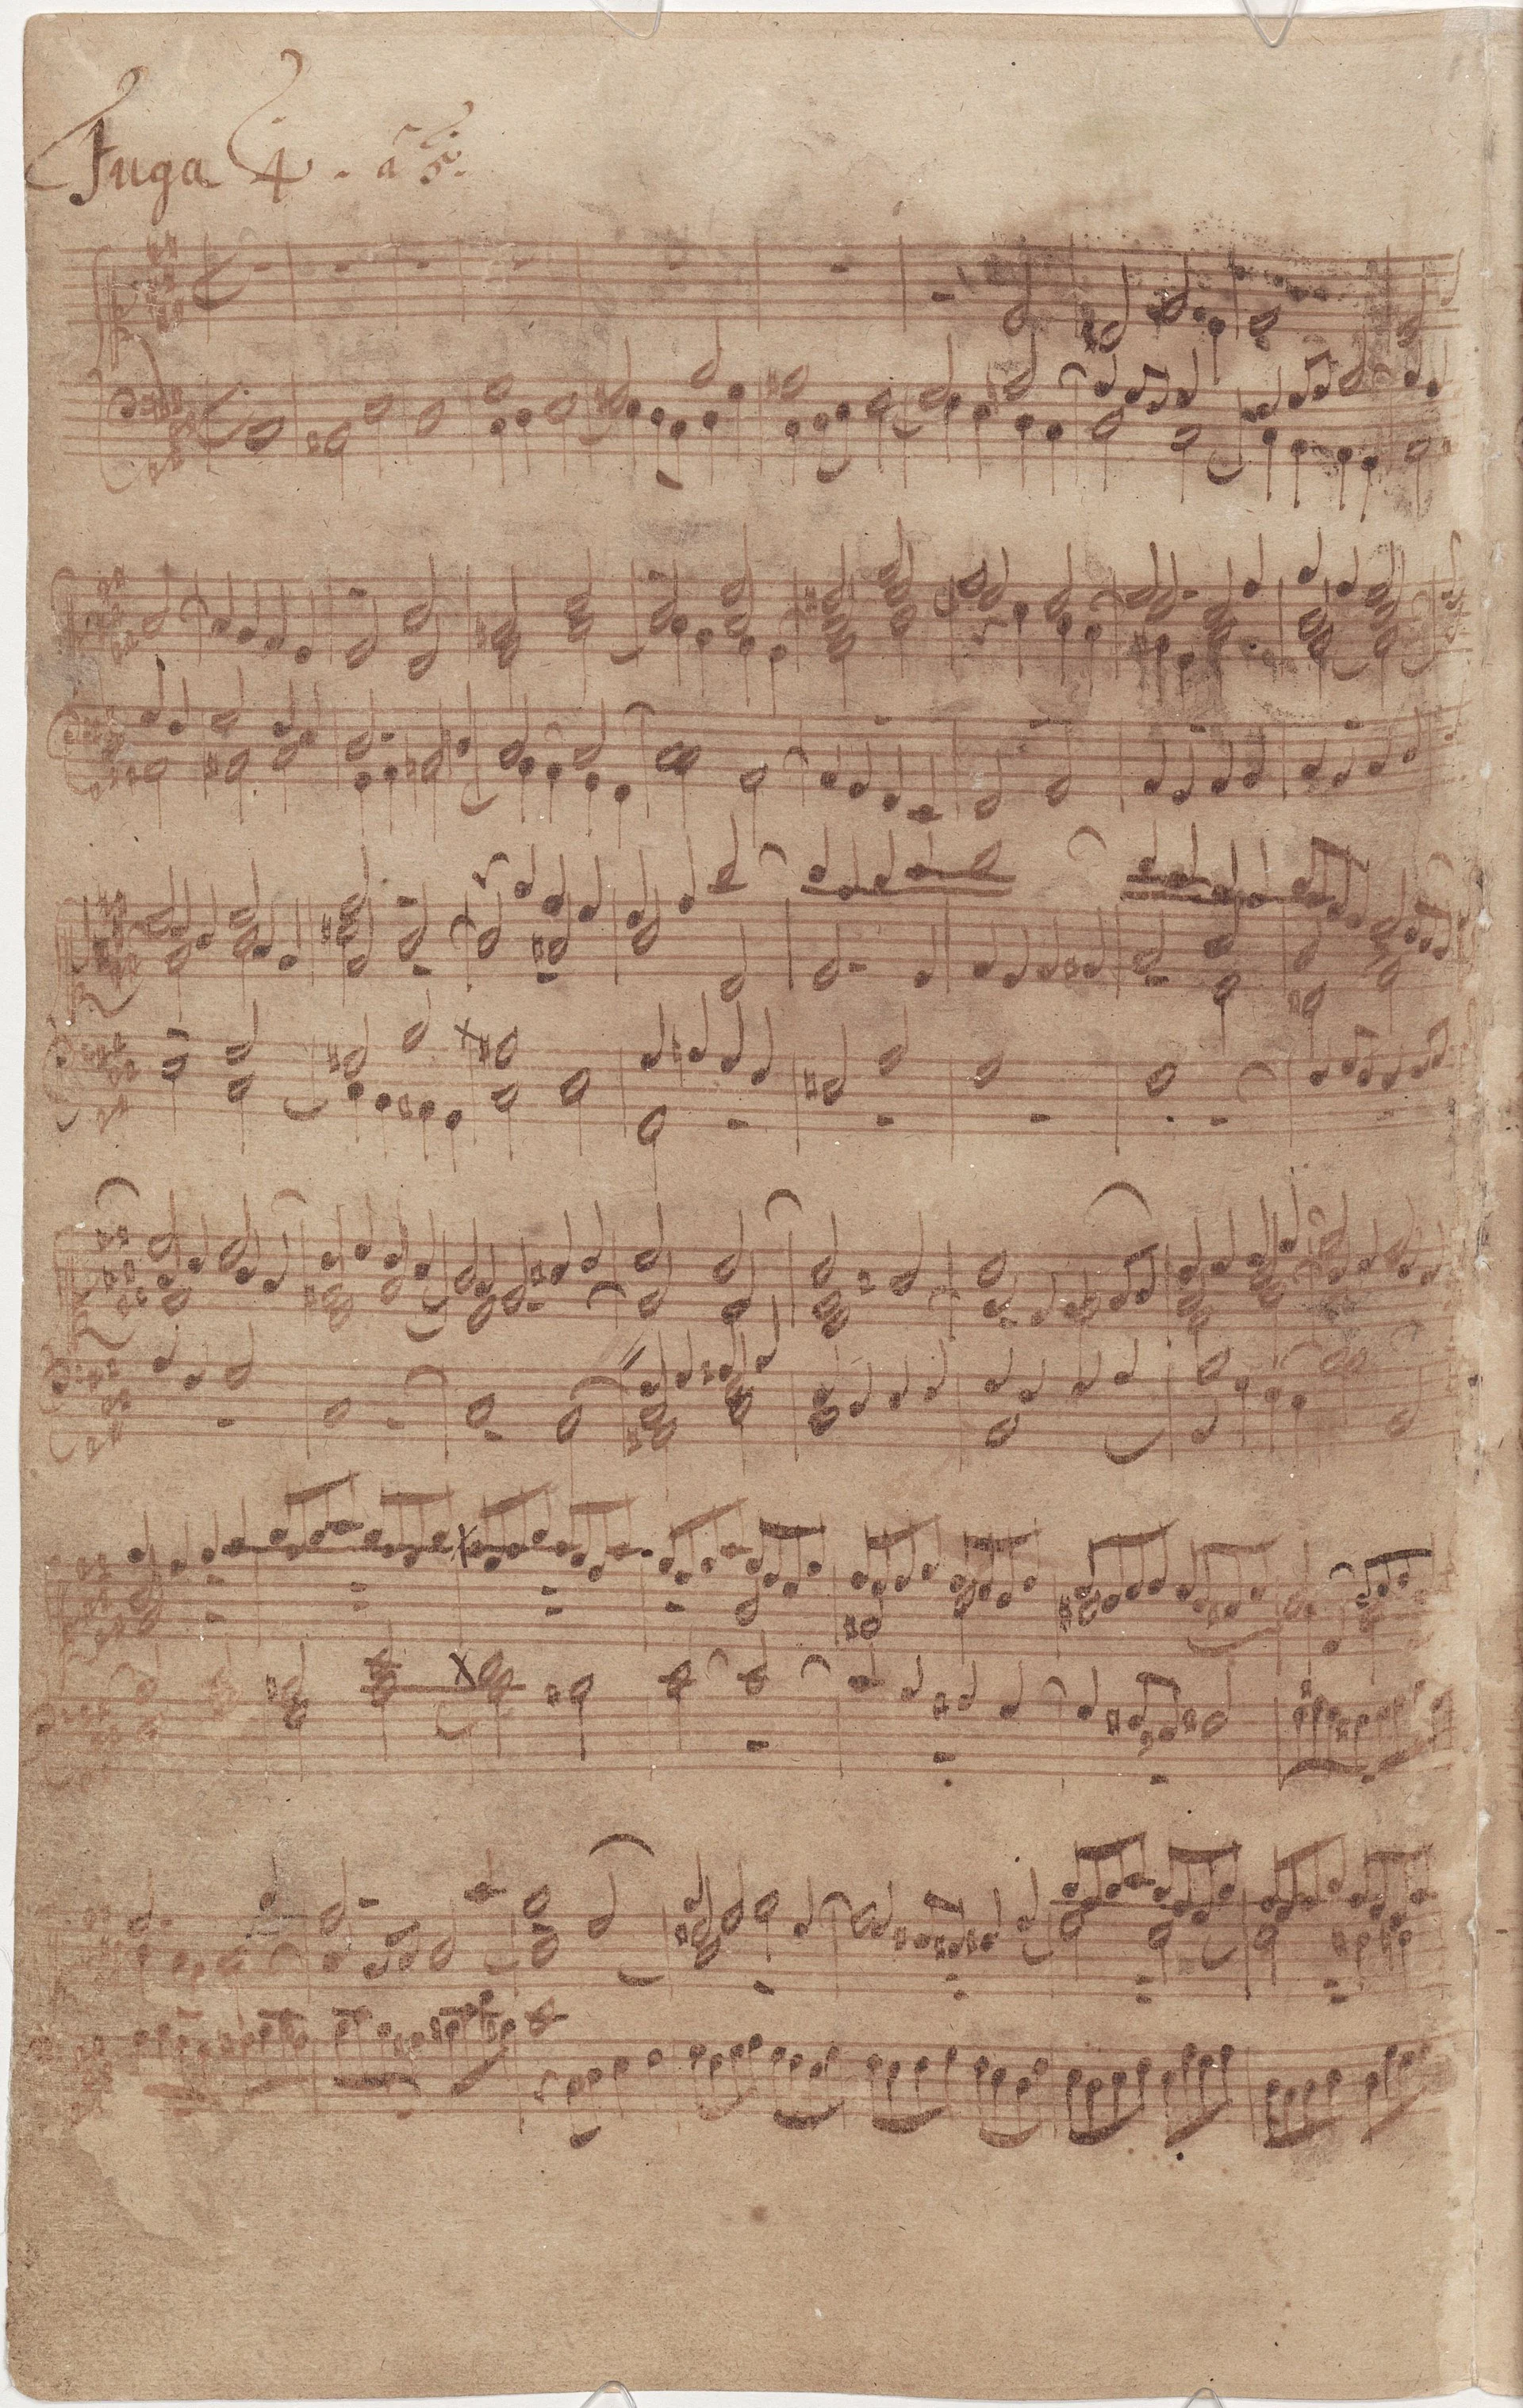 Fuga 4. à 5.